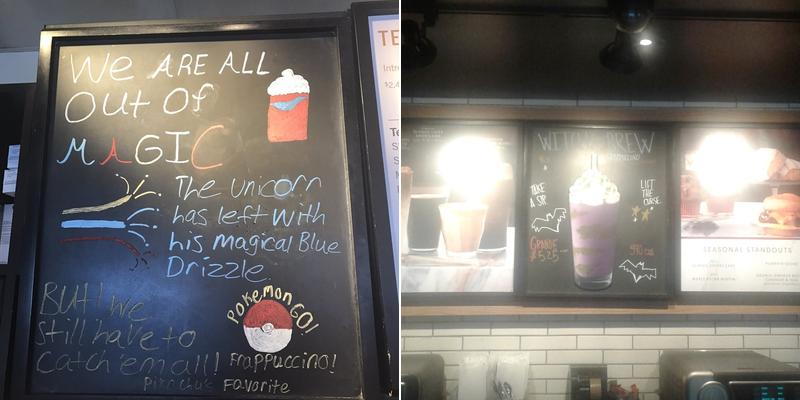 We ARE ALL
OUT OF
MAGIC
The unicorn
has left with
his magical Blue
Drizzle.
BUT! we
still have to
Catch'em all!
Pokemon GO!
Frappuccino!
Pikachu's Favorite
TE
WITCH'S BREW
TAKE
A SIP
LIFT
THE
CURSE
GRANDE
$5.25
SEASONAL STANDOUTS